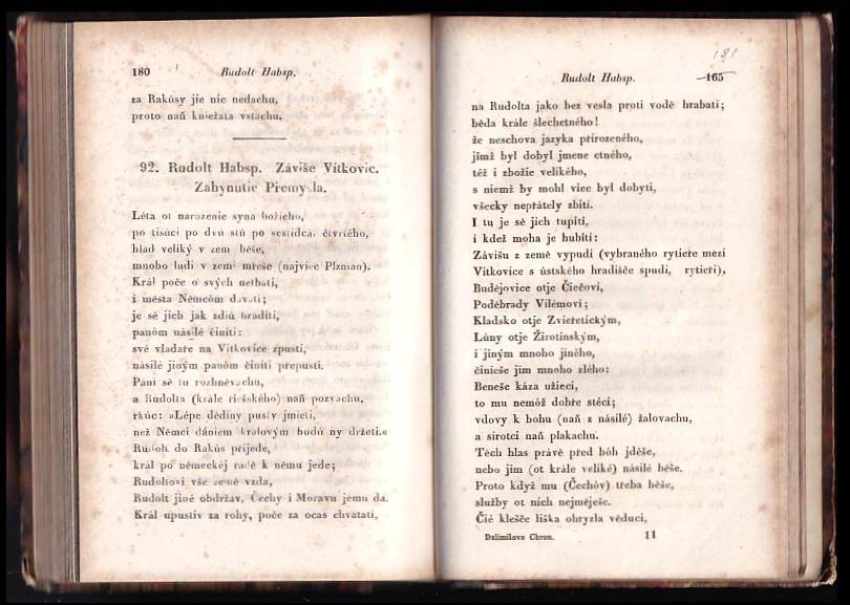 180 Rudolt Habsp.
za Rakúsy jie nic nedachu,
proto naň kniežata vstachu.
92. Rudolt Habsp. Záviše Vítkovic.
Zahynutie Přemysla.
Léta ot narozenie syna božieho,
po tisúci po dvú stú po šestidcát čtvrtého,
hlad veliký v zemi běše,
mnoho ludí v zemi mřeše (najviec Plzman).
Král poče o svých netbati,
i města Němcóm dávati;
je sě jich jak zdiú hraditi,
panóm násilé činiti:
své vladaře na Vítkovice zpusti,
násilé jiným panóm činiti přepusti.
Páni sě tu rozhněvachu,
a Rudolta (krále riešského) naň pozvachu,
řkúc: »Lépe dědiny pusty jmieti,
než Němci dániem královým budú ny držeti.«
Rudolt do Rakús přijede,
král po německéj radě k němu jede;
Rudoltovi vše země vzda,
Rudolt jiné obdržav, Čechy i Moravu jemu da.
Král upustiv za rohy, poče za ocas chvátati,
181
Rudolt Habsp. 165
na Rudolta jako bez vesla proti vodě hrabati;
běda krále šlechetného!
že neschova jazyka přirozeného,
jímž byl dobyl jmene ctného,
též i zbožie velikého,
s niemž by mohl viec byl dobyti,
všecky nepřátely zbiti.
I tu je sě jich tupiti,
i kdež moha je hubiti:
Závišu z země vypudi (vybraného rytieře mezi
Vítkovice s ústského hradišče spudi, rytieři),
Budějovice otje Čiečovi,
Poděbrady Vilémovi;
Kladsko otje Zvieřetickým,
Lúny otje Žirotínským,
i jiným mnoho jiného,
činieše jim mnoho zlého:
Beneše káza užieci,
to mu nemóž dobře stéci;
vdovy k bohu (naň z násilé) žalovachu,
a sirotci naň plakachu.
Těch hlas právě před bóh jdéše,
nebo jim (ot krále veliké) násilé běše.
Proto když mu (Čechóv) třeba běše,
služby ot nich nejmějéše.
Čié klešče liška ohryzla věduci,
Dalimilova Chron. 11